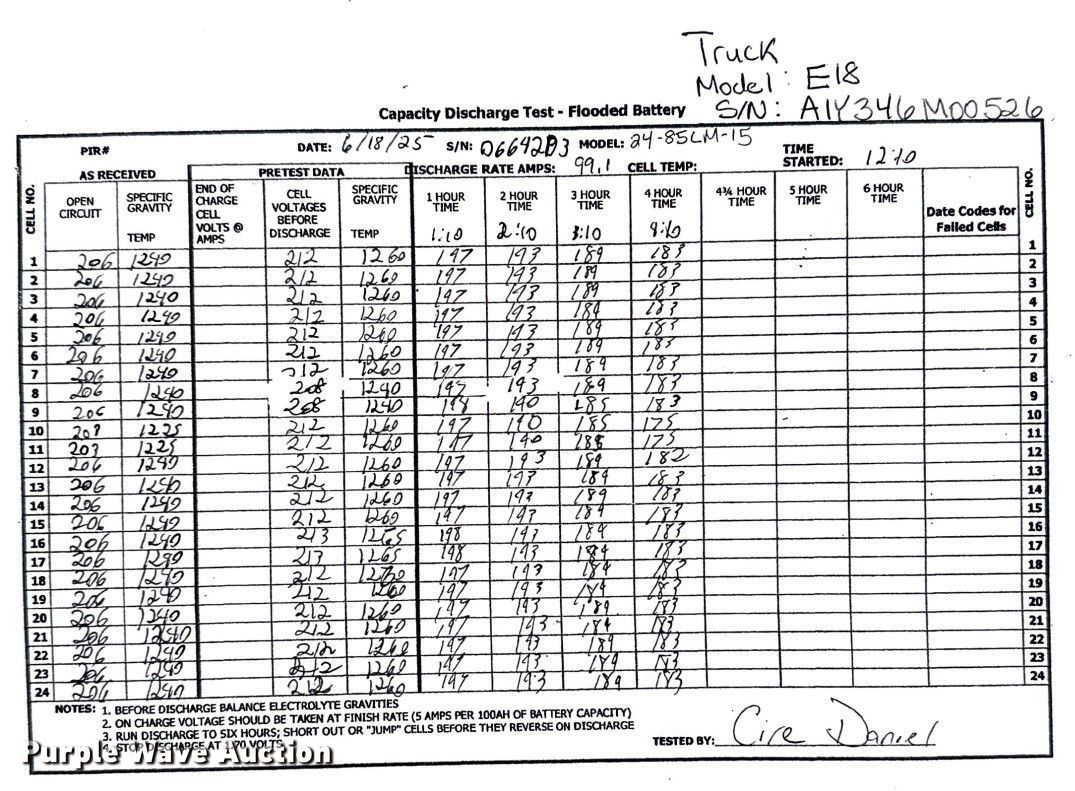 Truck
Model: E18
S/N: A1Y346M00526
Capacity Discharge Test - Flooded Battery
PIR# DATE: 6/18/25 S/N: MODEL: 24-85LM-15 TIME STARTED: 12:10
AS RECEIVED PRETEST DATA DISCHARGE RATE AMPS: 99.1 CELL TEMP:
CELL NO. OPEN CIRCUIT SPECIFIC GRAVITY TEMP END OF CHARGE CELL VOLTS @ AMPS CELL VOLTAGES BEFORE DISCHARGE SPECIFIC GRAVITY TEMP 1 HOUR TIME 2 HOUR TIME 3 HOUR TIME 4 HOUR TIME 4¾ HOUR TIME 5 HOUR TIME 6 HOUR TIME Date Codes for Failed Cells CELL NO.
1:10 2:10 3:10
1 206 1240 212 1260 197 193 189 183 1
2 206 1240 212 1260 197 193 189 183 2
3 206 1240 212 1260 197 193 189 183 3
4 206 1240 212 1260 197 193 189 183 4
5 206 1240 212 1260 197 193 189 183 5
6 206 1240 212 1260 197 193 189 183 6
7 206 1240 212 1260 197 193 189 183 7
8 206 1240 208 1240 197 193 189 183 8
9 206 1240 208 1240 198 190 185 183 9
10 1225 212 1260 197 190 185 175 10
11 203 1225 212 1260 197 190 175 11
12 206 1240 212 1260 197 193 189 182 12
13 206 1240 212 1260 197 193 189 183 13
14 206 1240 212 1260 197 193 189 183 14
15 206 1240 212 1260 197 193 189 183 15
16 206 1240 213 1265 198 193 189 183 16
17 206 1240 213 1265 198 193 189 183 17
18 206 1240 212 197 193 189 183 18
19 206 1240 212 1260 197 193 189 183 19
20 206 1240 212 1260 197 193 189 183 20
21 206 1240 212 1260 197 193 189 183 21
22 206 1240 212 1260 197 193 189 183 22
23 206 1240 212 1260 197 193 189 183 23
24 206 1240 212 1260 197 193 189 183 24
NOTES: 1. BEFORE DISCHARGE BALANCE ELECTROLYTE GRAVITIES
2. ON CHARGE VOLTAGE SHOULD BE TAKEN AT FINISH RATE (5 AMPS PER 100AH OF BATTERY CAPACITY)
3. RUN DISCHARGE TO SIX HOURS; SHORT OUT OR "JUMP" CELLS BEFORE THEY REVERSE ON DISCHARGE
4. STOP DISCHARGE AT 1.70 VOLTS
TESTED BY: Cire Daniel
Purple Wave Auction